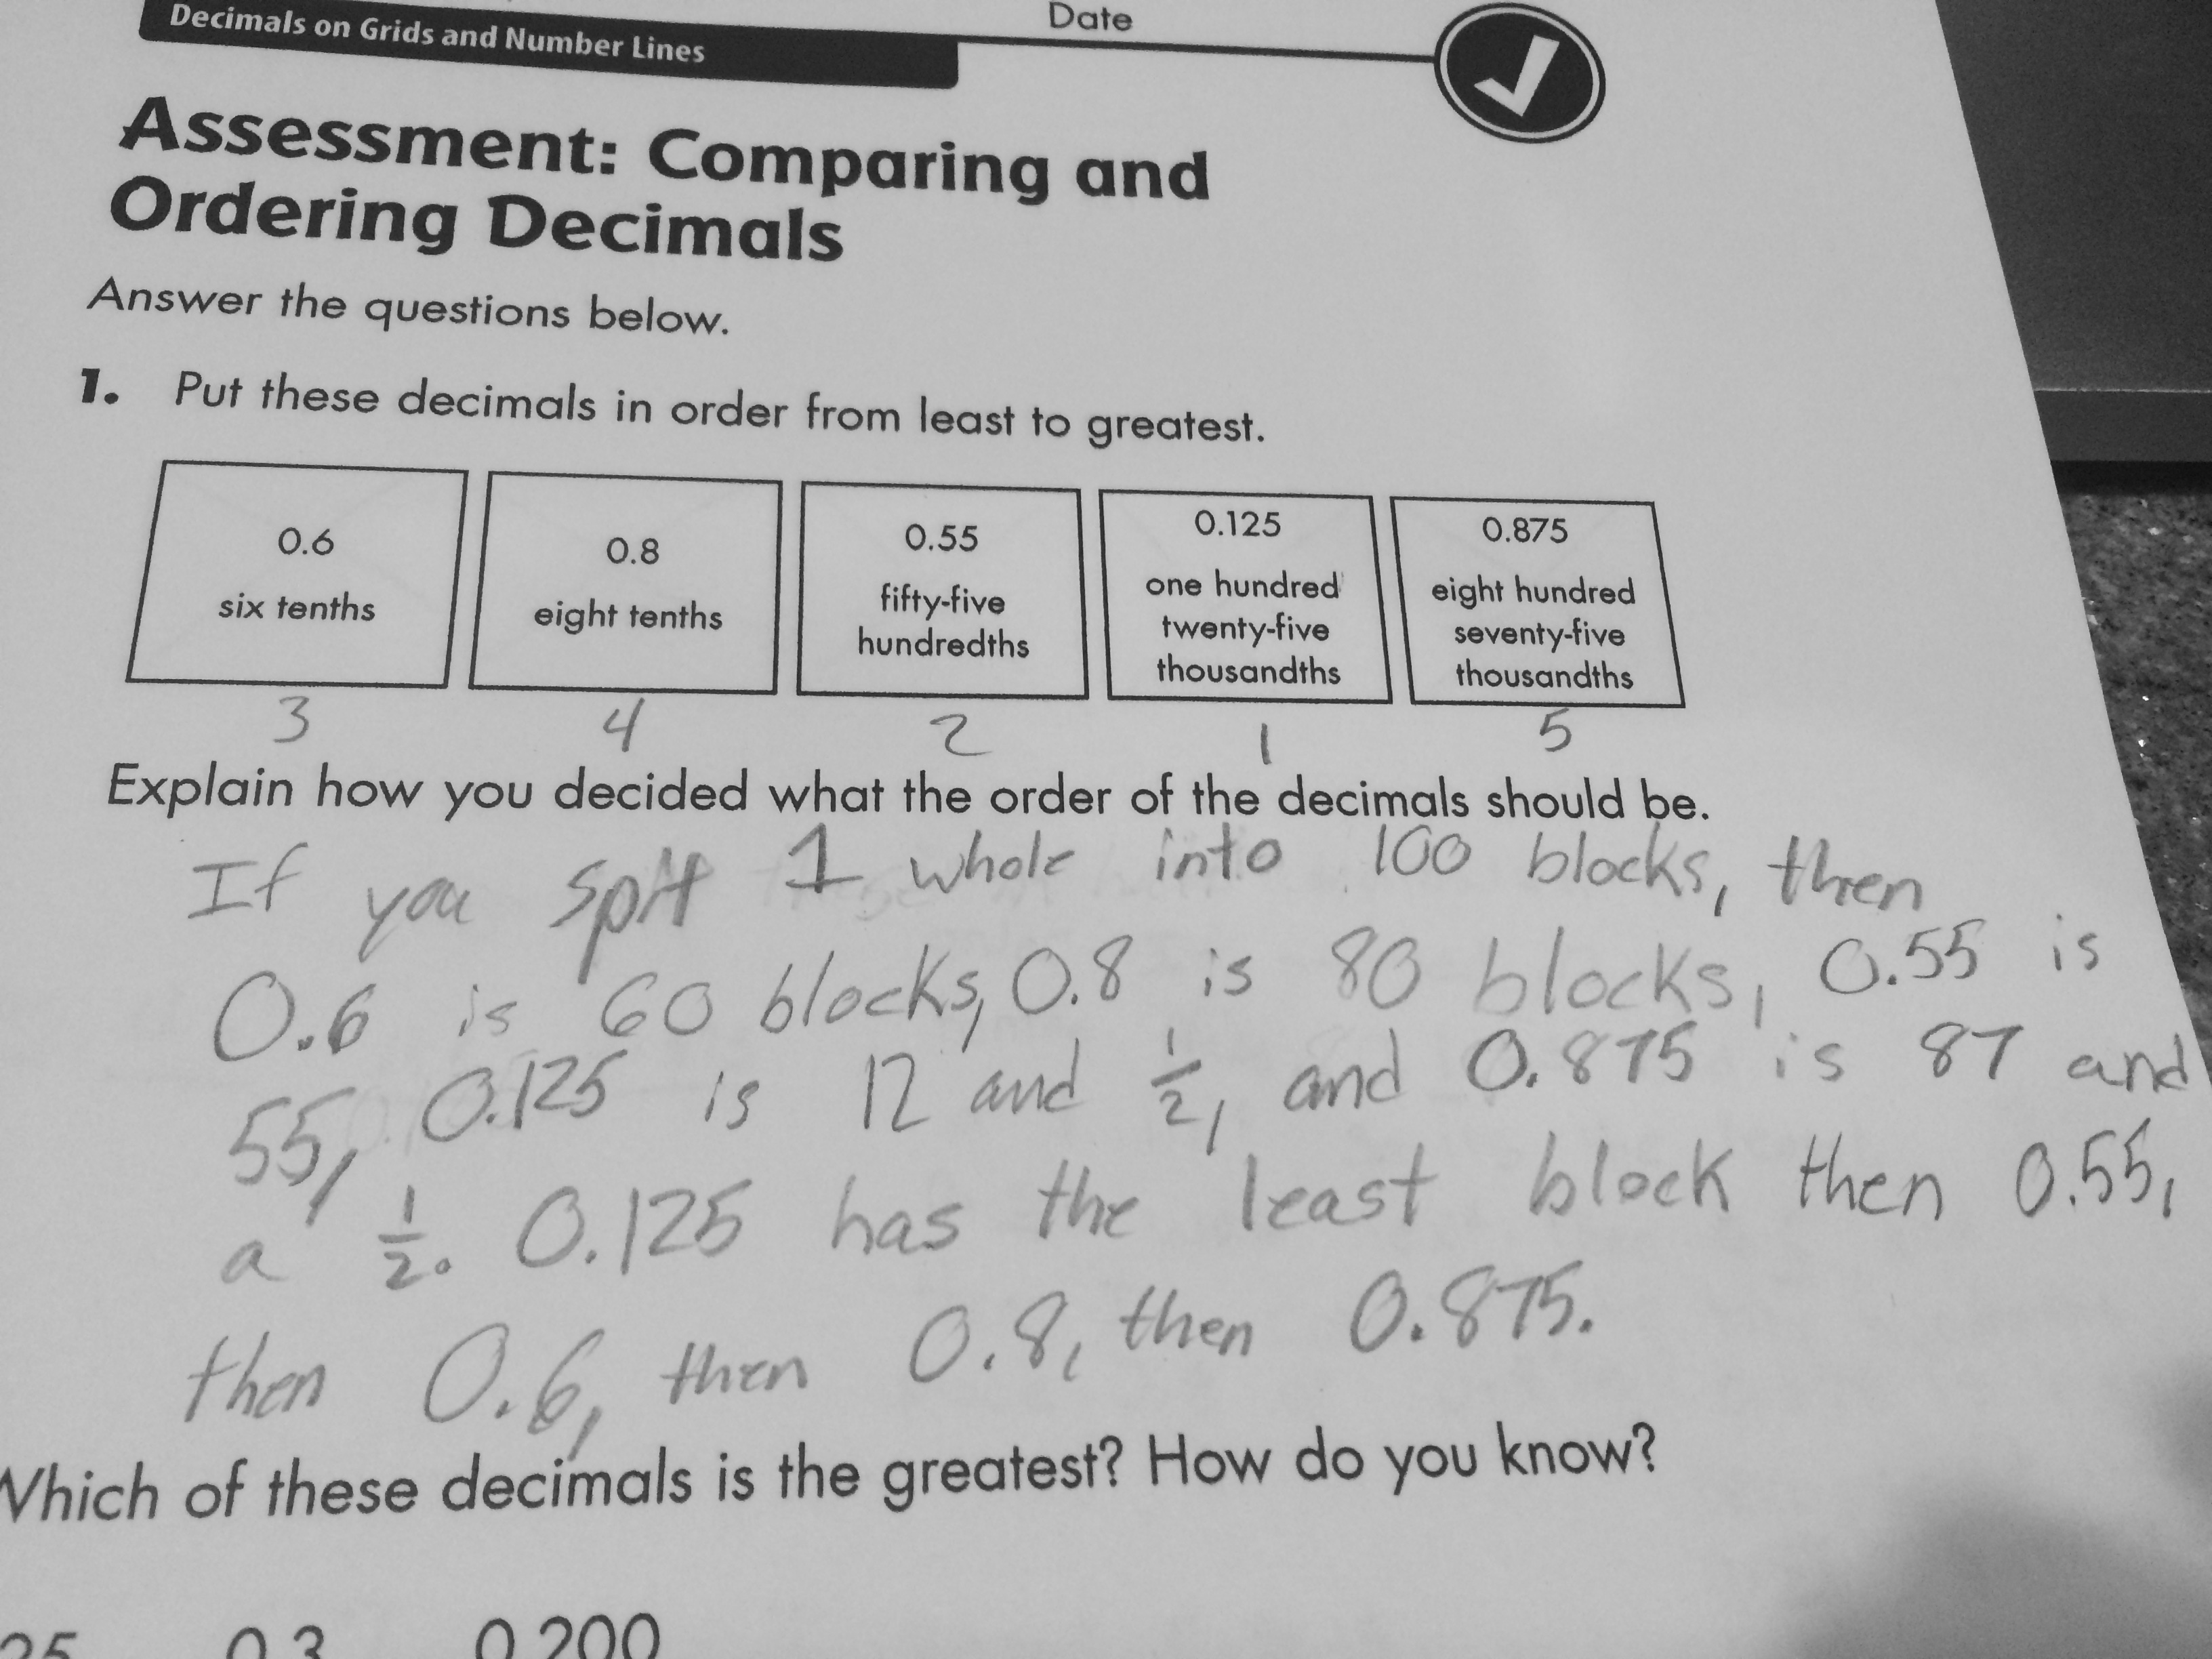 Decimals on Grids and Number Lines
Date
Assessment: Comparing and
Ordering Decimals
Answer the questions below.
1. Put these decimals in order from least to greatest.
0.6
six tenths
0.8
eight tenths
0.55
fifty-five
hundredths
0.125
one hundred
twenty-five
thousandths
0.875
eight hundred
seventy-five
thousandths
3 4 2 1 5
Explain how you decided what the order of the decimals should be.
If you split 1 whole into 100 blocks, then
0.6 is 60 blocks, 0.8 is 80 blocks, 0.55 is
55, 0.125 is 12 and 1/2, and 0.875 is 87 and
a 1/2. 0.125 has the least block then 0.55,
then 0.6, then 0.8, then 0.875.
Which of these decimals is the greatest? How do you know?
25 0.3 0.200